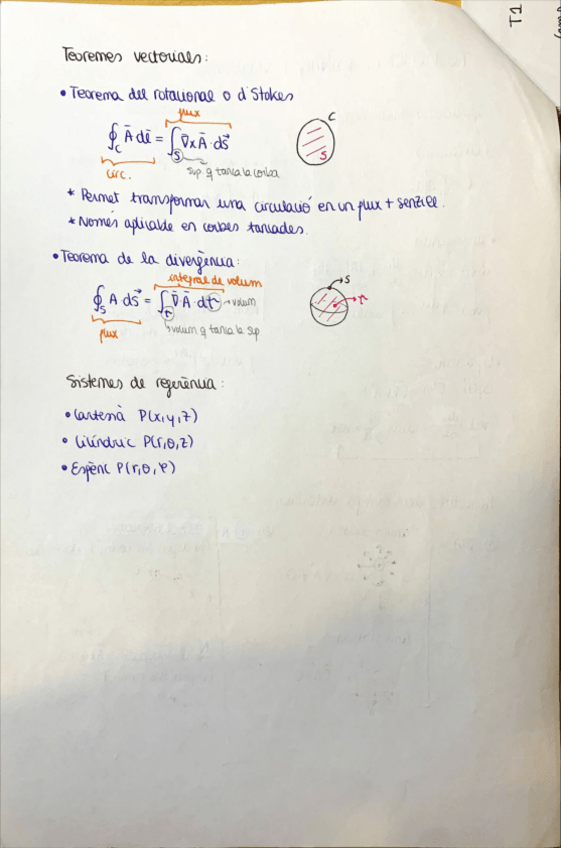 T1
Teoremes vectorials:
• Teorema del rotacional o d'Stokes
flux
∮_C Ā·dl̄ = ∫_S ∇̄xĀ·ds⃗
C
S
circ.
sup q tanca la corba
* Permet transformar una circulació en un flux + senzill.
* Només aplicable en corbes tancades.
• Teorema de la divergència:
integral de volum
∮_S A·ds⃗ = ∫_τ ∇̄·Ā·dτ → volum
S
τ
flux
volum q tanca la sup
Sistemes de referència:
• Cartesià P(x,y,z)
• Cilíndric P(r,θ,z)
• Esfèric P(r,θ,φ)